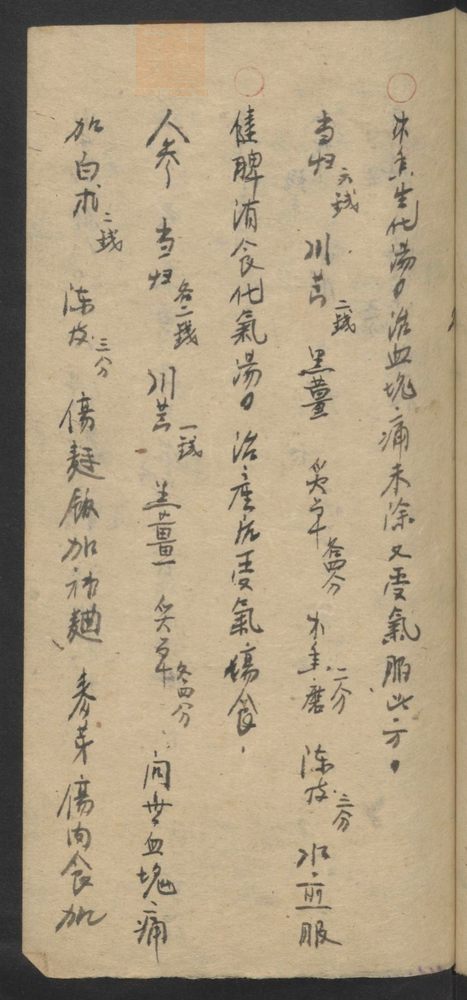 ○木香生化湯。治血塊痛未除又受氣服此方。
当归六錢 川芎二錢 黑薑 炙草各四分 木香磨二分 陈皮三分 水煎服
○健脾消食化氣湯。治產后受氣傷食。
人参 当归各二錢 川芎一錢 黑薑 炙草各四分 問無血塊痛
加白朮二錢 陈皮三分 傷麺飯加神麯 麦芽 傷肉食加